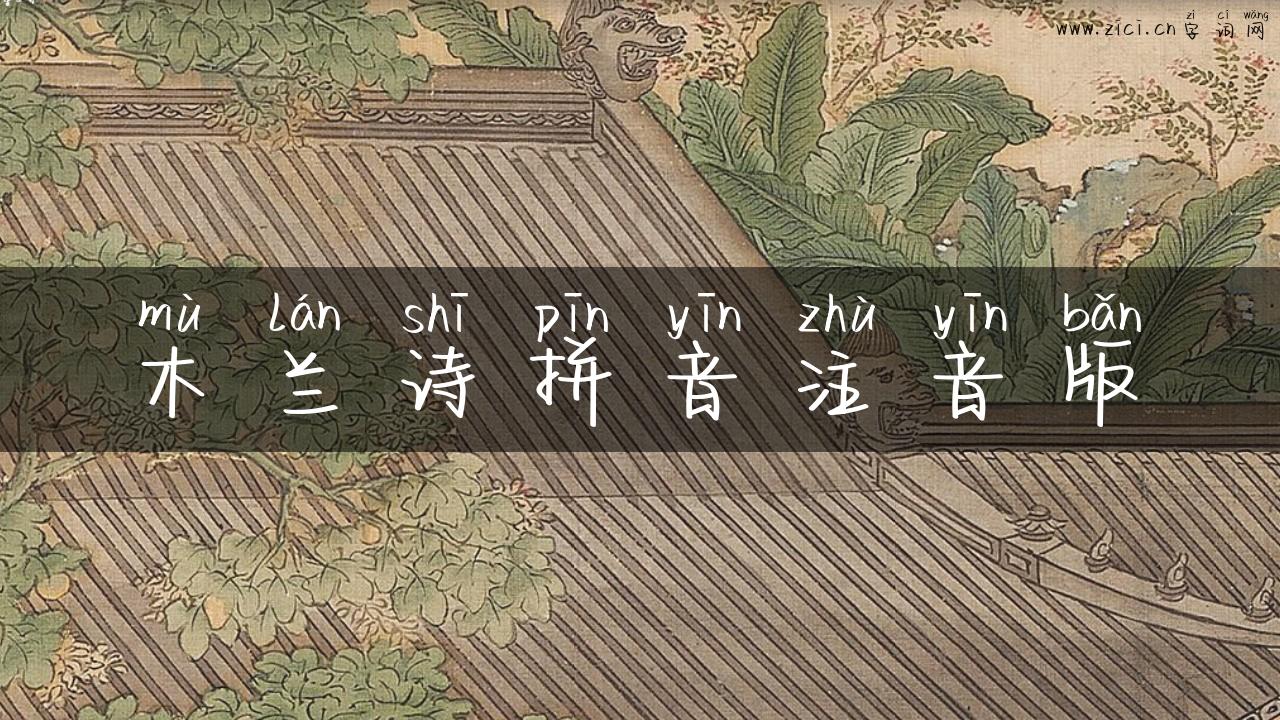 zì cí wǎng
www.zici.cn 字词网
mù lán shī pīn yīn zhù yīn bǎn
木兰诗拼音注音版